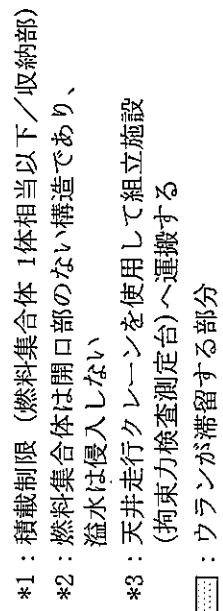 *1：積載制限（燃料集合体 1体相当以下／収納部）
*2：燃料集合体は開口部のない構造であり、
溢水は侵入しない
*3：天井走行クレーンを使用して組立施設
（拘束力検査測定台）へ運搬する
：ウランが滞留する部分